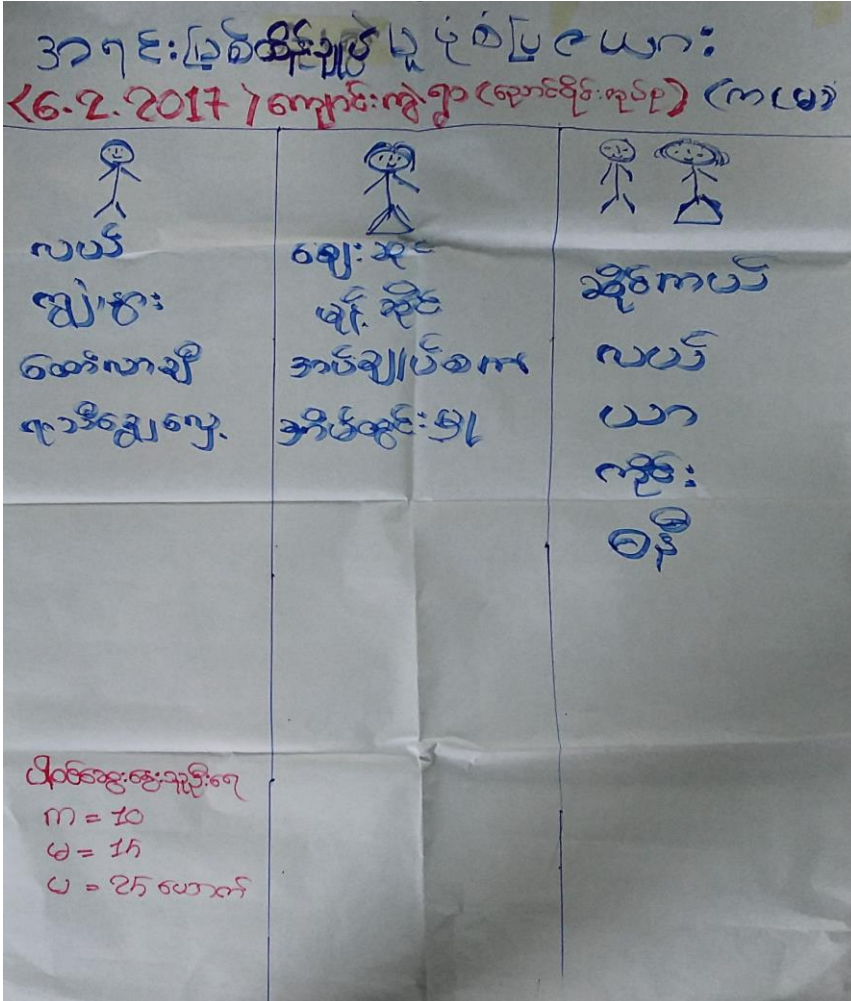 အရင်းမြစ်ထိန်းချုပ်မှုပုံစံပြဇယား
(6.2.2017) ကျောင်းကွဲရွာ (ညောင်ဝိုင်းအုပ်စု) (က၊မ)
လယ်
ကျွဲ၊နွား
ထော်လာချီ
ဈေးဆိုင်
မုန့်ဆိုင်
အပ်ချုပ်စက်
အိမ်တွင်းမှု
ဆိုင်ကယ်
လယ်
ယာ
ကိုင်း
ဓနိ
ပါဝင်ဆွေးနွေးသူဦးရေ
က = 10
မ = 15
ပ = 25 ယောက်